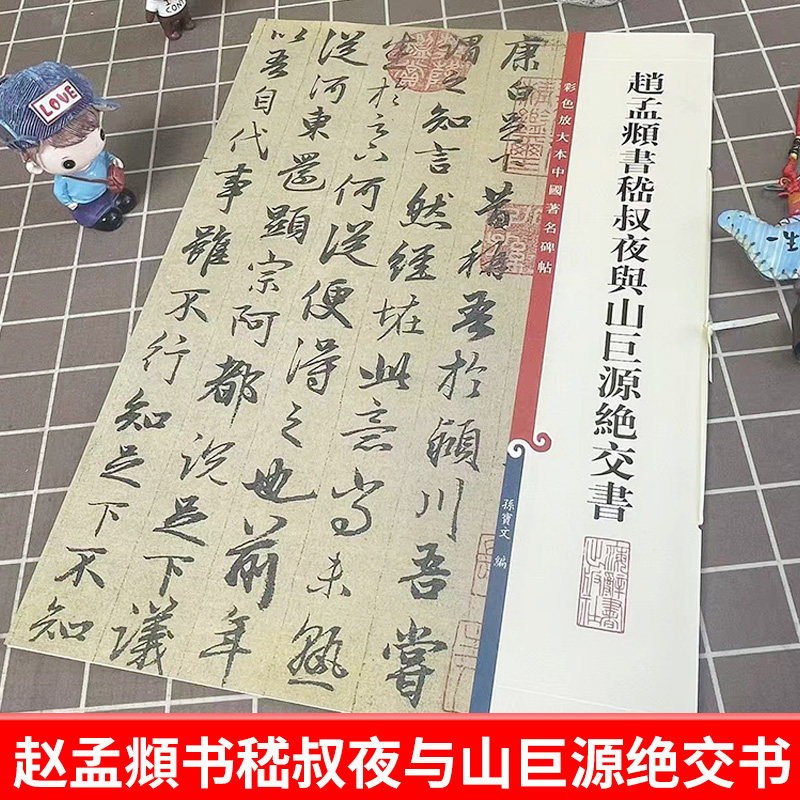 趙孟頫書嵇叔夜與山巨源絶交書
上海辭書出版社
彩色放大本中國著名碑帖
孫寶文 編
康白足下昔稱吾於潁川吾嘗
謂之知言然經怪此意尚未熟
悉於足下何從便得之也前年
從河東還顯宗阿都説足下議
以吾自代事雖不行知足下不知
LOVE
一生
赵孟頫书嵇叔夜与山巨源绝交书